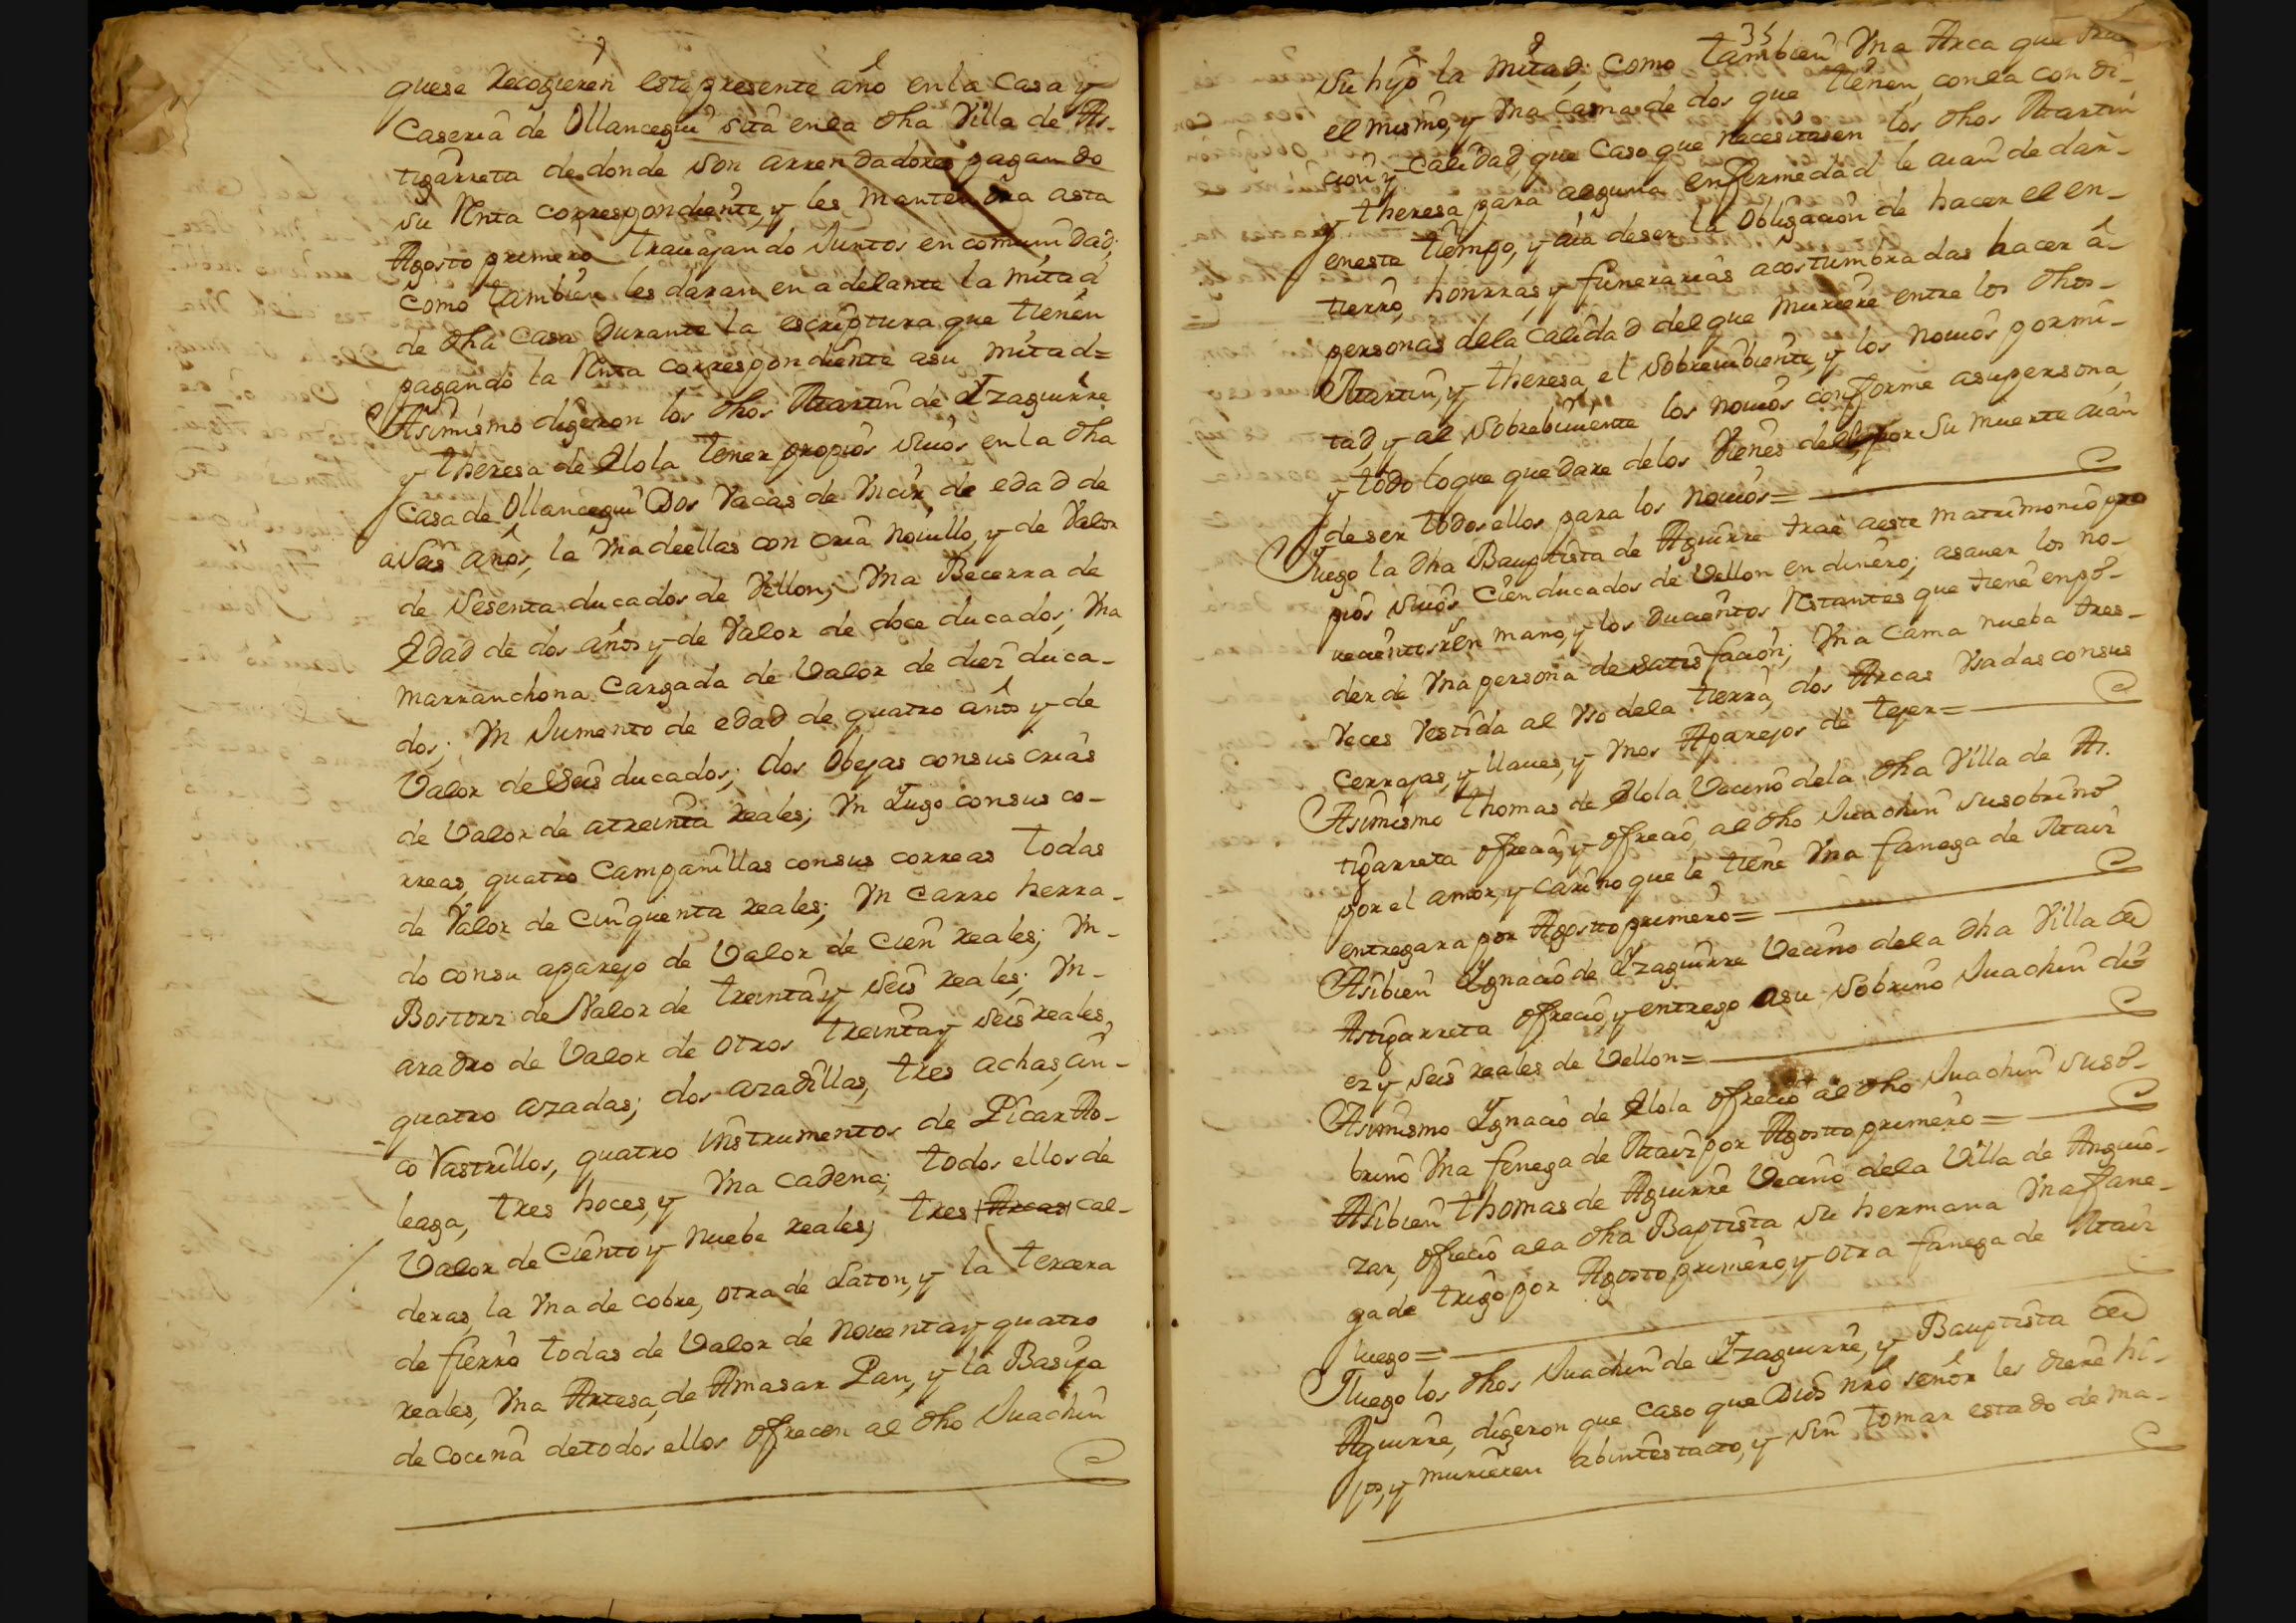 quese Recogieren este presente año en la Casa y
Caseria de Ollancegui sita en la dha Villa de As-
tigarreta de donde son arrendadores pagando
su Renta correspondiente, y les mantendra asta
Agosto primero trauajando Juntos en comunidad;
como tambien les daran en adelante la mitad
de dha Casa Durante la escriptura que tienen
pagando la Renta correspondiente asu mitad=
Asimismo digeron los dhos Martin de Yzaguirre
y theresa de Elola tener propios suios en la dha
Casa de Ollancegui Dos Vacas de Vncir de edad de
a Seis años, la Vna de ellas con cria Nouillo, y de Valor
de Sesenta ducados de Vellon; Vna Becerra de
Edad de dos años y de Valor de doce ducados; Vna
marranchona Cargada de Valor de diez duca-
dos; Vn Jumento de edad de quatro años y de
Valor de Seis ducados; dos Obejas consus crias
de Valor de atreinta reales; Vn Iugo consus co-
rreas, quatro Campanillas consus correas todas
de Valor de Cinquenta reales; Vn Carro herra-
do consu aparejo de Valor de Cien reales; Vn-
Bostorz de Valor de treinta y seis reales; Vn-
aradro de Valor de otros treinta y seis reales,
quatro azadas; dos azadillas, tres achas, cin-
co Rastrillos, quatro instrumentos de Picar Ar-
leaga, tres hoces, y Vna Cadena; todos ellos de
Valor de Ciento y nuebe reales; tres Arcas cal-
deras, la Vna de cobre, otra de Laton, y la tercera
de fierro todas de Valor de nouenta y quatro
reales, Vna Artesa, de Amasar Pan, y la Basija
de Cocina de todos ellos ofrecen al dho Juachin
35
8
Su hijo la Mitad; como tambien Vna Arca que
el mismo, y Vna Cama de dos que tienen, con la condi-
cion y Calidad, que Caso que necesitasen los dhos Martin
y theresa para alguna enfermedad le aian de dar-
en este tiempo, y aia deser la Obligacion de hacer el en-
tierro, honrras, y funerarias acostumbradas hacer á-
personas de la Calidad del que muriere entre los dhos-
Martin, y theresa el Sobreuibiente, y los nouios por mi-
tad, y al Sobrebiuiente los nouios conforme asu persona,
y todo lo que quedare de los Vienes de el, por Su muerte aian
deser todos ellos para los nouios=
Iuego la dha Bauptista de Aguirre trae aeste matrimonio pro
pios suios Cien ducados de Vellon en dinero; asauer los no-
uecientos rs en mano, y los ducientos Restantes que tiene en po-
der de Vna persona de satisfacion; Vna Cama nueba tres-
Veces Vestida al Vso de la tierra, dos Arcas Vsadas consus
Cerrajas, y llaues, y Vnos Aparejos de tejer=
Asimismo thomas de Elola Vecino dela dha Villa de As-
tigarreta ofrecia, y ofrecio, al dho Juachin susobrino
por el amor, y cariño que le tiene Vna fanega de Maiz
entregara por Agosto primero=
Asibien Ygnacio de Yzaguirre Vecino dela dha Villa de
Astigarreta ofrecio, y entrego asu Sobrino Juachin di-
ez y seis reales de Vellon=
Asimismo Ygnacio de Elola ofrecio al dho Juachin suso-
brino Vna fenega de Maiz por Agosto primero=
Asibien thomas de Aguirre Vecino dela Villa de Anguio-
zar, ofrecio ala dha Baptista su hermana Vna fane-
ga de trigo por Agosto primero, y otra fanega de Maiz
luego=
Iluego los dhos Juachin de Yzaguirre, y Bauptista de
Aguirre, digeron que caso que Dios nro señor les diere hi-
jos, y murieren abintestacto, y sin tomar estado de ma-